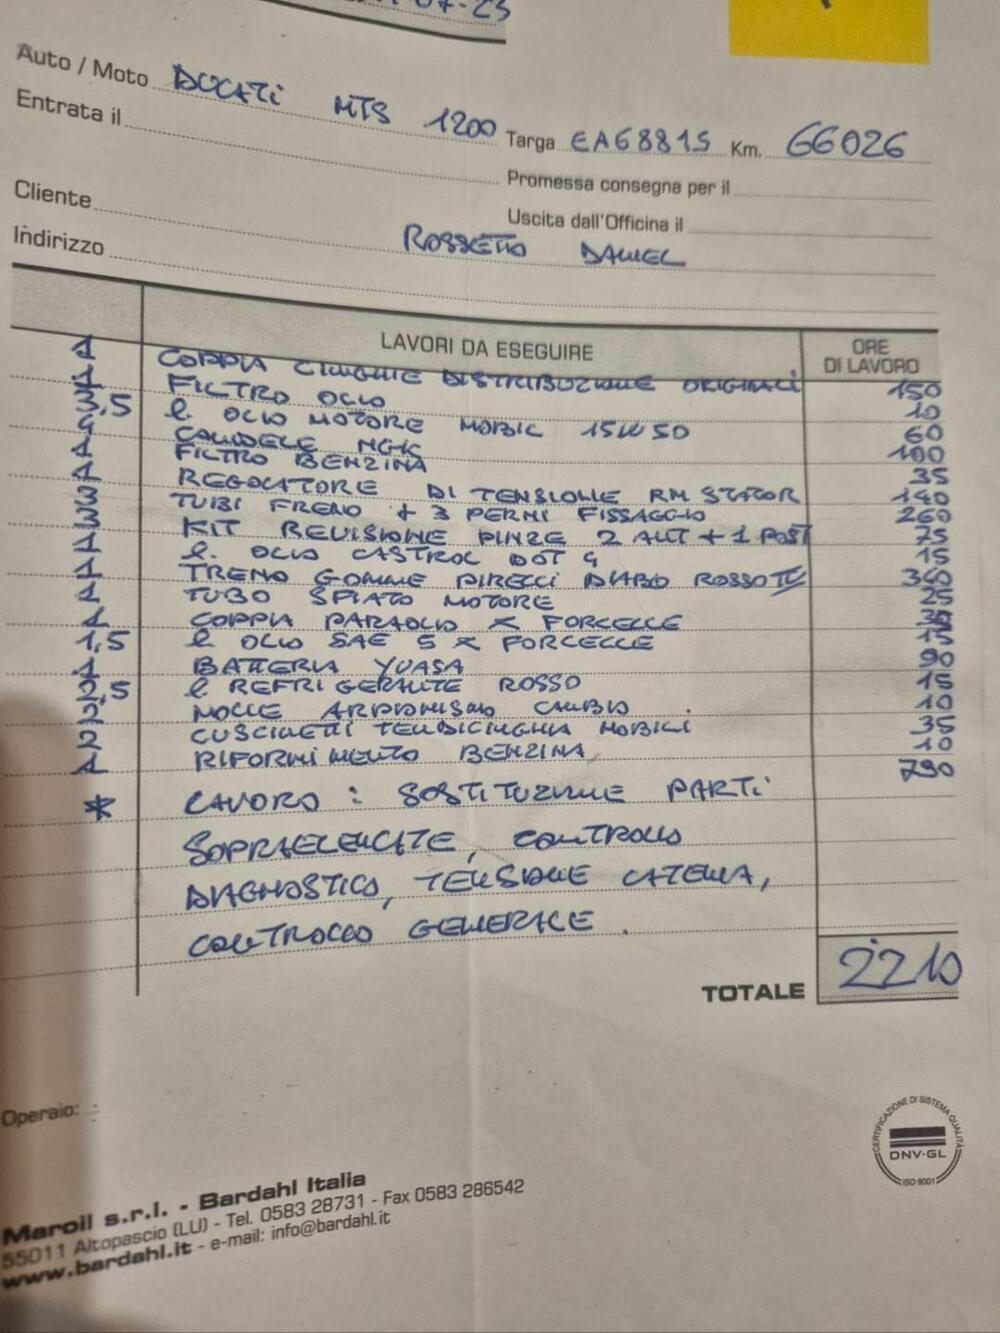 07-23
Auto / Moto DUCATI MTS 1200 Targa EA68815 Km. 66026
Entrata il Promessa consegna per il
Cliente Uscita dall'Officina il
Indirizzo ROSSETTO DANIEL
LAVORI DA ESEGUIRE ORE DI LAVORO
1 COPPIA CINGHIE DISTRIBUZIONE ORIGINALI 150
1 FILTRO OLIO 10
3,5 l. OLIO MOTORE MOBIL 15W50 60
4 CANDELE NGK 100
1 FILTRO BENZINA 35
1 REGOLATORE DI TENSIONE RM STATOR 140
3 TUBI FRENO + 3 PERNI FISSAGGIO 260
3 KIT REVISIONE PINZE 2 ANT + 1 POST 75
1 l. OLIO CASTROL DOT 4 15
1 TRENO GOMME PIRELLI DIABLO ROSSO 340
1 TUBO SFIATO MOTORE 25
1 COPPIA PARAOLIO X FORCELLE
1,5 l OLIO SAE 5 X FORCELLE 15
1 BATTERIA YUASA 90
2,5 l REFRIGERANTE ROSSO 15
2 MOLLE ARPIONISMO CAMBIO 10
2 CUSCINETTI TENDICINGHIA MOBILI 35
1 RIFORNIMENTO BENZINA 10
* LAVORO: SOSTITUZIONE PARTI 790
SOPRAELENCATE, CONTROLLO
DIAGNOSTICO, TENSIONE CATENA,
CONTROLLO GENERALE.
TOTALE 2210
Operaio:
CERTIFICAZIONE DI SISTEMA QUALITÀ
DNV·GL
ISO 9001
Maroil s.r.l. - Bardahl Italia
55011 Altopascio (LU) - Tel. 0583 28731 - Fax 0583 286542
www.bardahl.it - e-mail: info@bardahl.it